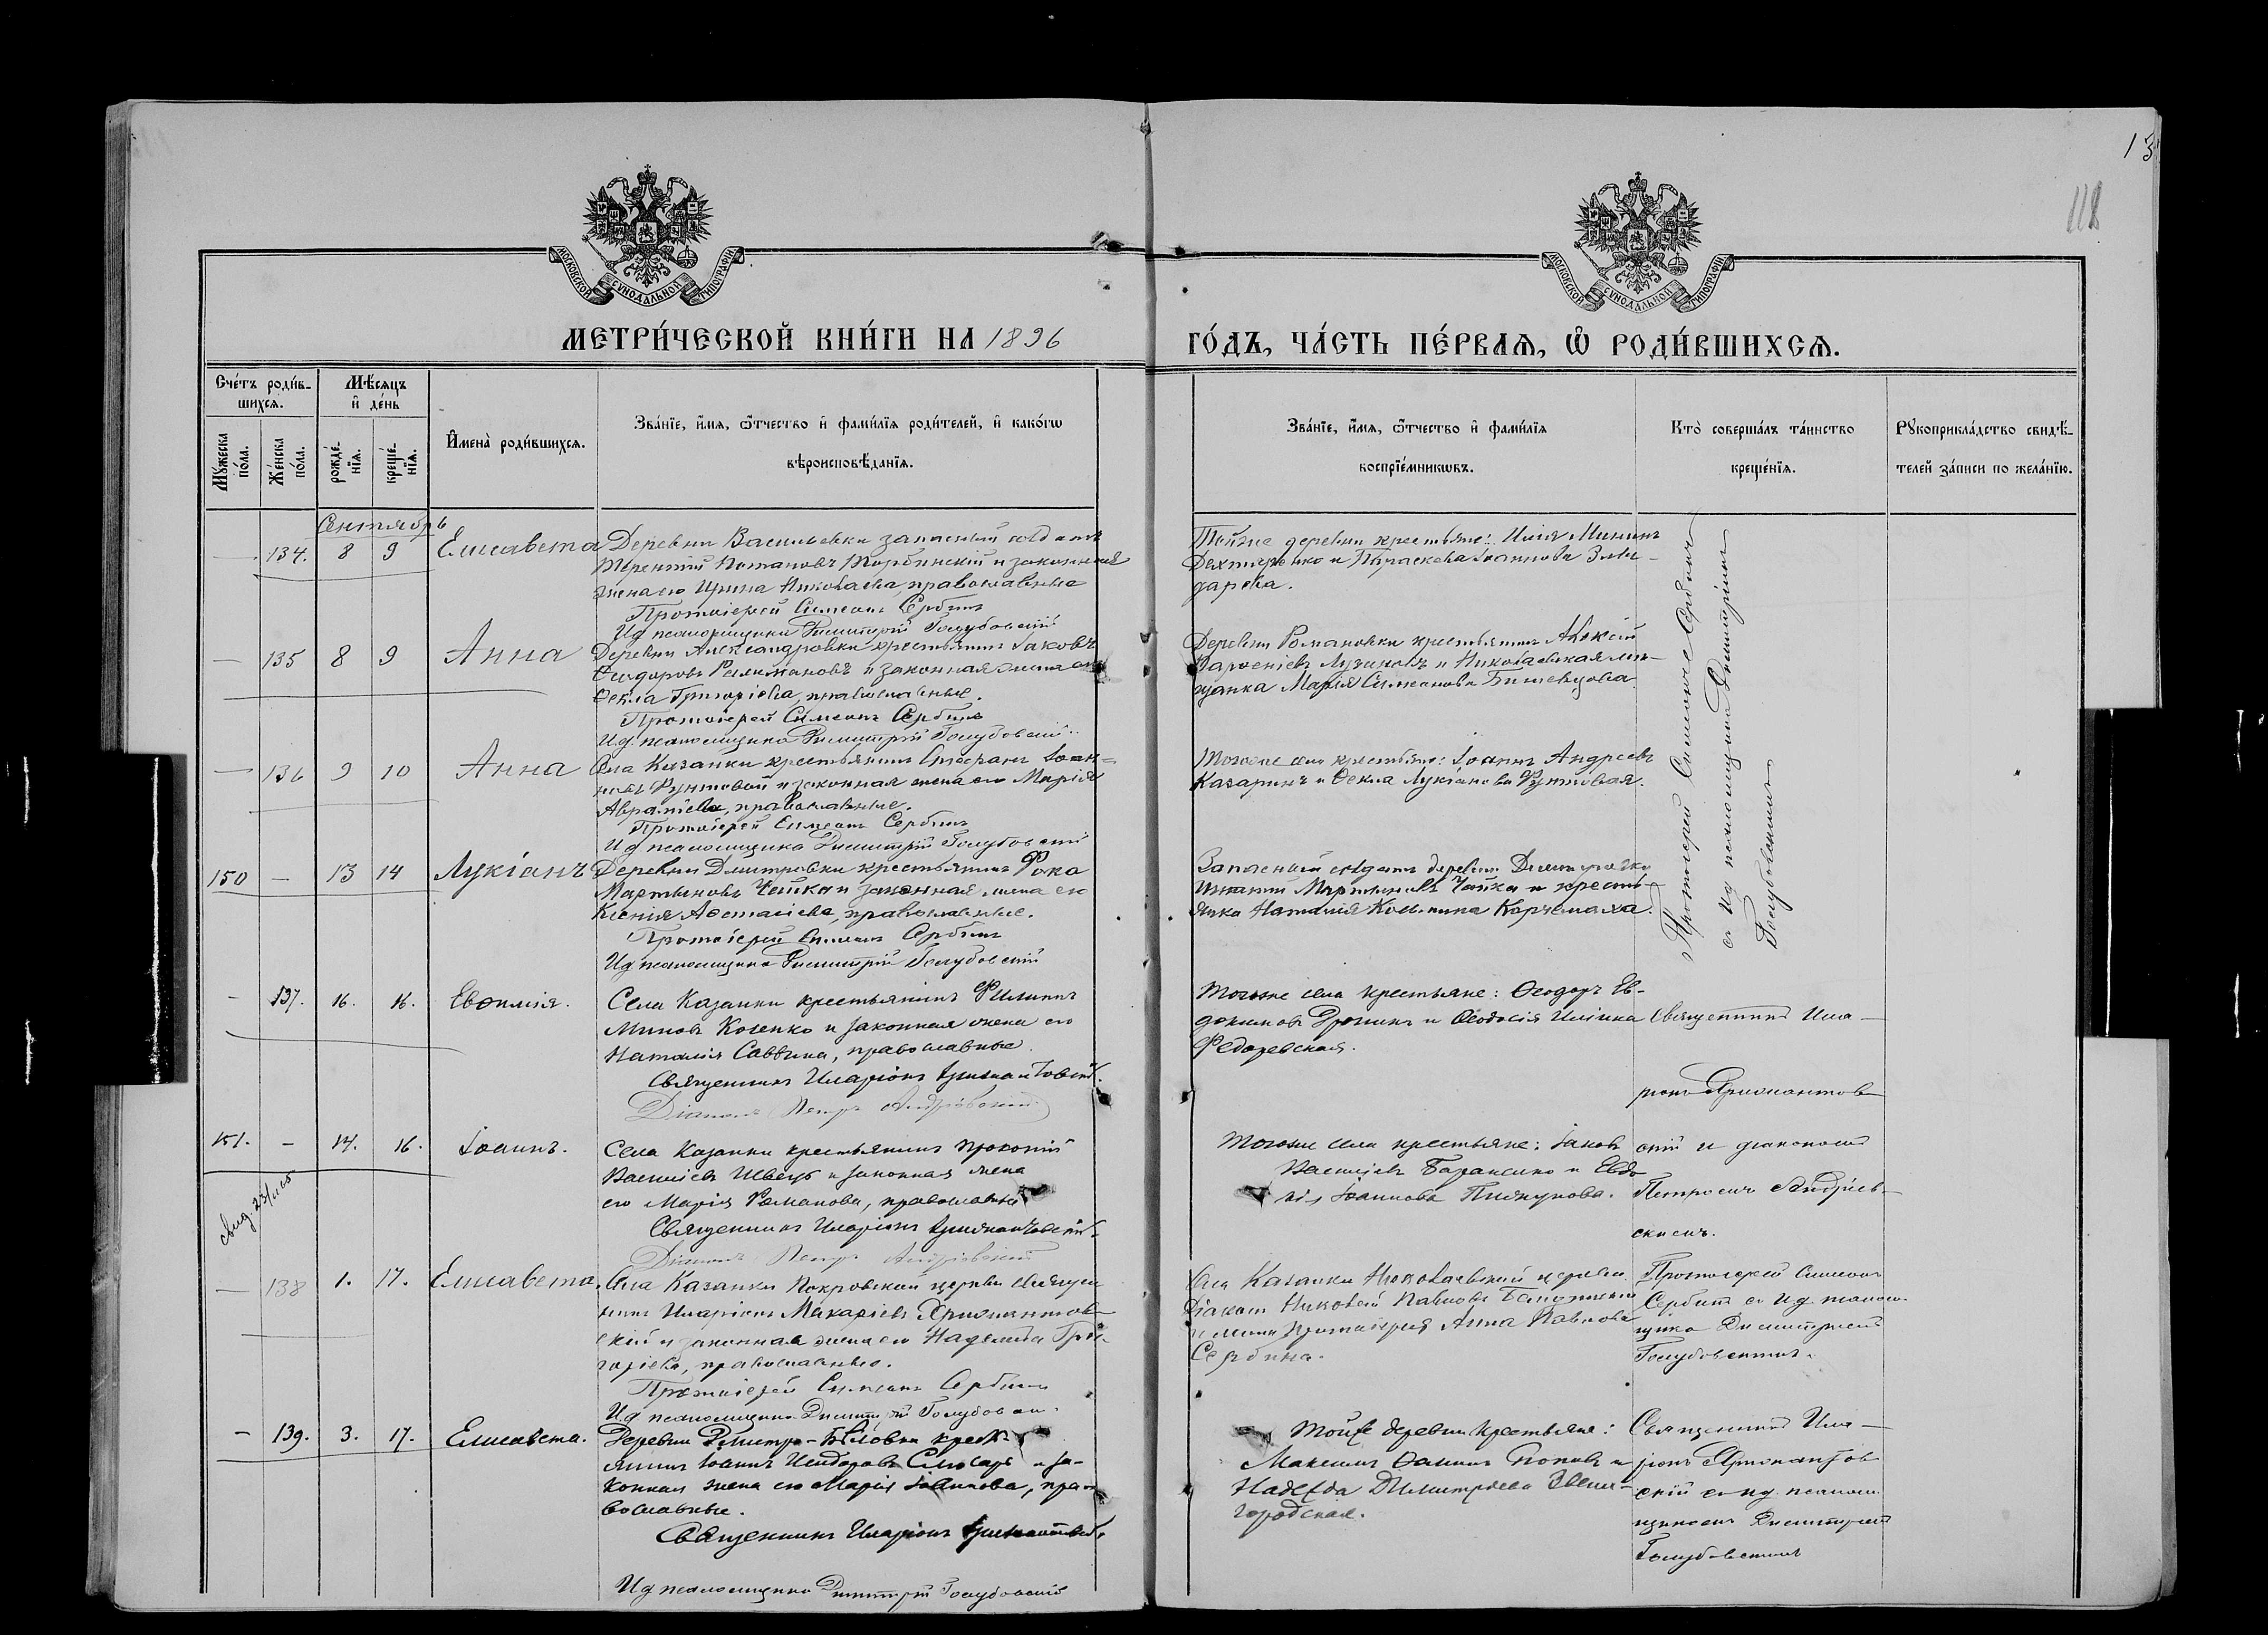 13
118
МОСКОВСКОЙ СѴНОДАЛЬНОЙ ТИПОГРАФІИ.
МОСКОВСКОЙ СѴНОДАЛЬНОЙ ТИПОГРАФІИ.
МЕТРИ́ЧЕСКОЙ КНИ́ГИ НА 1896
ГО́ДЪ, ЧА́СТЬ ПЕ́РВАѦ, Ѽ РОДИ́ВШИХСѦ.
Сче́тъ роди́в-
шихсѧ.
Мꙋжеска по́ла.
Же́нска по́ла.
Мѣ́сѧцъ
и҆ де́нь
рожде́нїѧ.
креще́нїѧ.
И҆мена̀ роди́вшихсѧ.
Зва́нїе, и҆́мѧ, ѻ҆́тчество и҆ фами́лїѧ роди́телей, и҆ како́гѡ
вѣроисповѣ́данїѧ.
Зва́нїе, и҆́мѧ, ѻ҆́тчество и҆ фами́лїѧ
воспрїе́мникѡвъ.
Кто̀ соверша́лъ та́инство
креще́нїѧ.
Рꙋкоприкла́дство свидѣ́-
телей за́писи по жела́нїю.
Сентябрь
— 134. 8 9 Елисавета
Деревни Васильевки запасный солдатъ
Терентій Потаповъ Торбинскій и законная
жена его Ирина Николаева, православные
Протоіерей Симеонъ Сербинъ
Ид псаломщика Димитрій Голубовскій
Тойже деревни крестьяне: Илія Мининъ
Дехтяренко и Параскева Іоаннова
— 135 8 9 Анна
Деревни Александровки крестьянинъ Іаковъ
Ѳеодоровъ и законная жена его
Ѳекла Григоріева, православные.
Протоіерей Симеонъ Сербинъ
Ид. псаломщика Димитрій Голубовскій
Деревни Романовки крестьянинъ Алексій
и Николаевская мѣ-
щанка Марія Симеонова
— 136 9 10 Анна
Села Казанки крестьянинъ Стефанъ Іоан-
новъ и законная жена его Марія
православные.
Протоіерей Симеонъ Сербинъ
Ид псаломщика Димитрій Голубовскій
Тогоже села крестьяне: Іоаннъ Андреевъ
Казаринъ и Ѳекла Лукіанова
Протоіерей Симеонъ Сербинъ
съ ид псаломщика Димитріемъ
Голубовскимъ
150 — 13 14 Лукіанъ
Деревни Дмитровки крестьянинъ Фока
Мартыновъ Чайка и законная жена его
Ксенія православные.
Протоіерей Симеонъ Сербинъ
Ид псаломщика Димитрій Голубовскій
Запасный солдатъ деревни Дмитровки
Игнатій Мартыновъ Чайка и кресть-
янка Наталія Козьмина
— 137. 16. 16. Евѳимія.
Села Казанки крестьянинъ Филиппъ
Миновъ Косенко и законная жена его
Наталія Саввина, православные.
Священникъ Иларіонъ
Діаконъ Петръ Андріевскій
Тогоже села крестьяне: Ѳеодоръ Ев-
докимовъ и Ѳеодосія Иліина
Федоревская.
Священникъ Ила-
151. — 14. 16. Іоаннъ.
свид. 23/
Села Казанки крестьянинъ Прокопій
Василіевъ Швецъ и законная жена
его Марія Романова, православные
Священникъ Иларіонъ
Діаконъ Петръ Андріевскій
Тогоже села крестьяне: Іаковъ
Василіевъ Бараненко и Евдо-
кія Іоаннова
скій и діакономъ
Петромъ Андріев-
скимъ.
— 138 1. 17. Елисавета.
Села Казанки Покровской церкви священ-
никъ Иларіонъ Макаріевъ
скій и законная жена его Надежда Гри-
горіева, православные.
Протоіерей Симеонъ Сербинъ
Ид псаломщика Димитрій Голубовскій
Села Казанки Николаевской церкви
Діаконъ Николай Павловъ
и жена протоіерея Анна Павлова
Сербина.
Протоіерей Симеонъ
Сербинъ съ ид. псалом-
щика Димитріемъ
Голубовскимъ.
— 139. 3. 17. Елисавета.
Деревни Дмитро-Бѣловки кресть-
янинъ Іоаннъ Исидоровъ Слюсарь и за-
конная жена его Марія Іоаннова, пра-
вославные.
Священникъ Иларіонъ
Ид псаломщика Димитрій Голубовскій
Тойже деревни крестьяне:
Максимъ Ѳоминъ Поповъ и
Надежда Димитріева Звени-
городская.
Священникъ Ила-
скій съ ид. псалом-
щикомъ Димитріемъ
Голубовскимъ